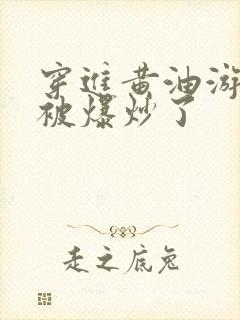 穿进黄油游
被爆炒了
走之底兔